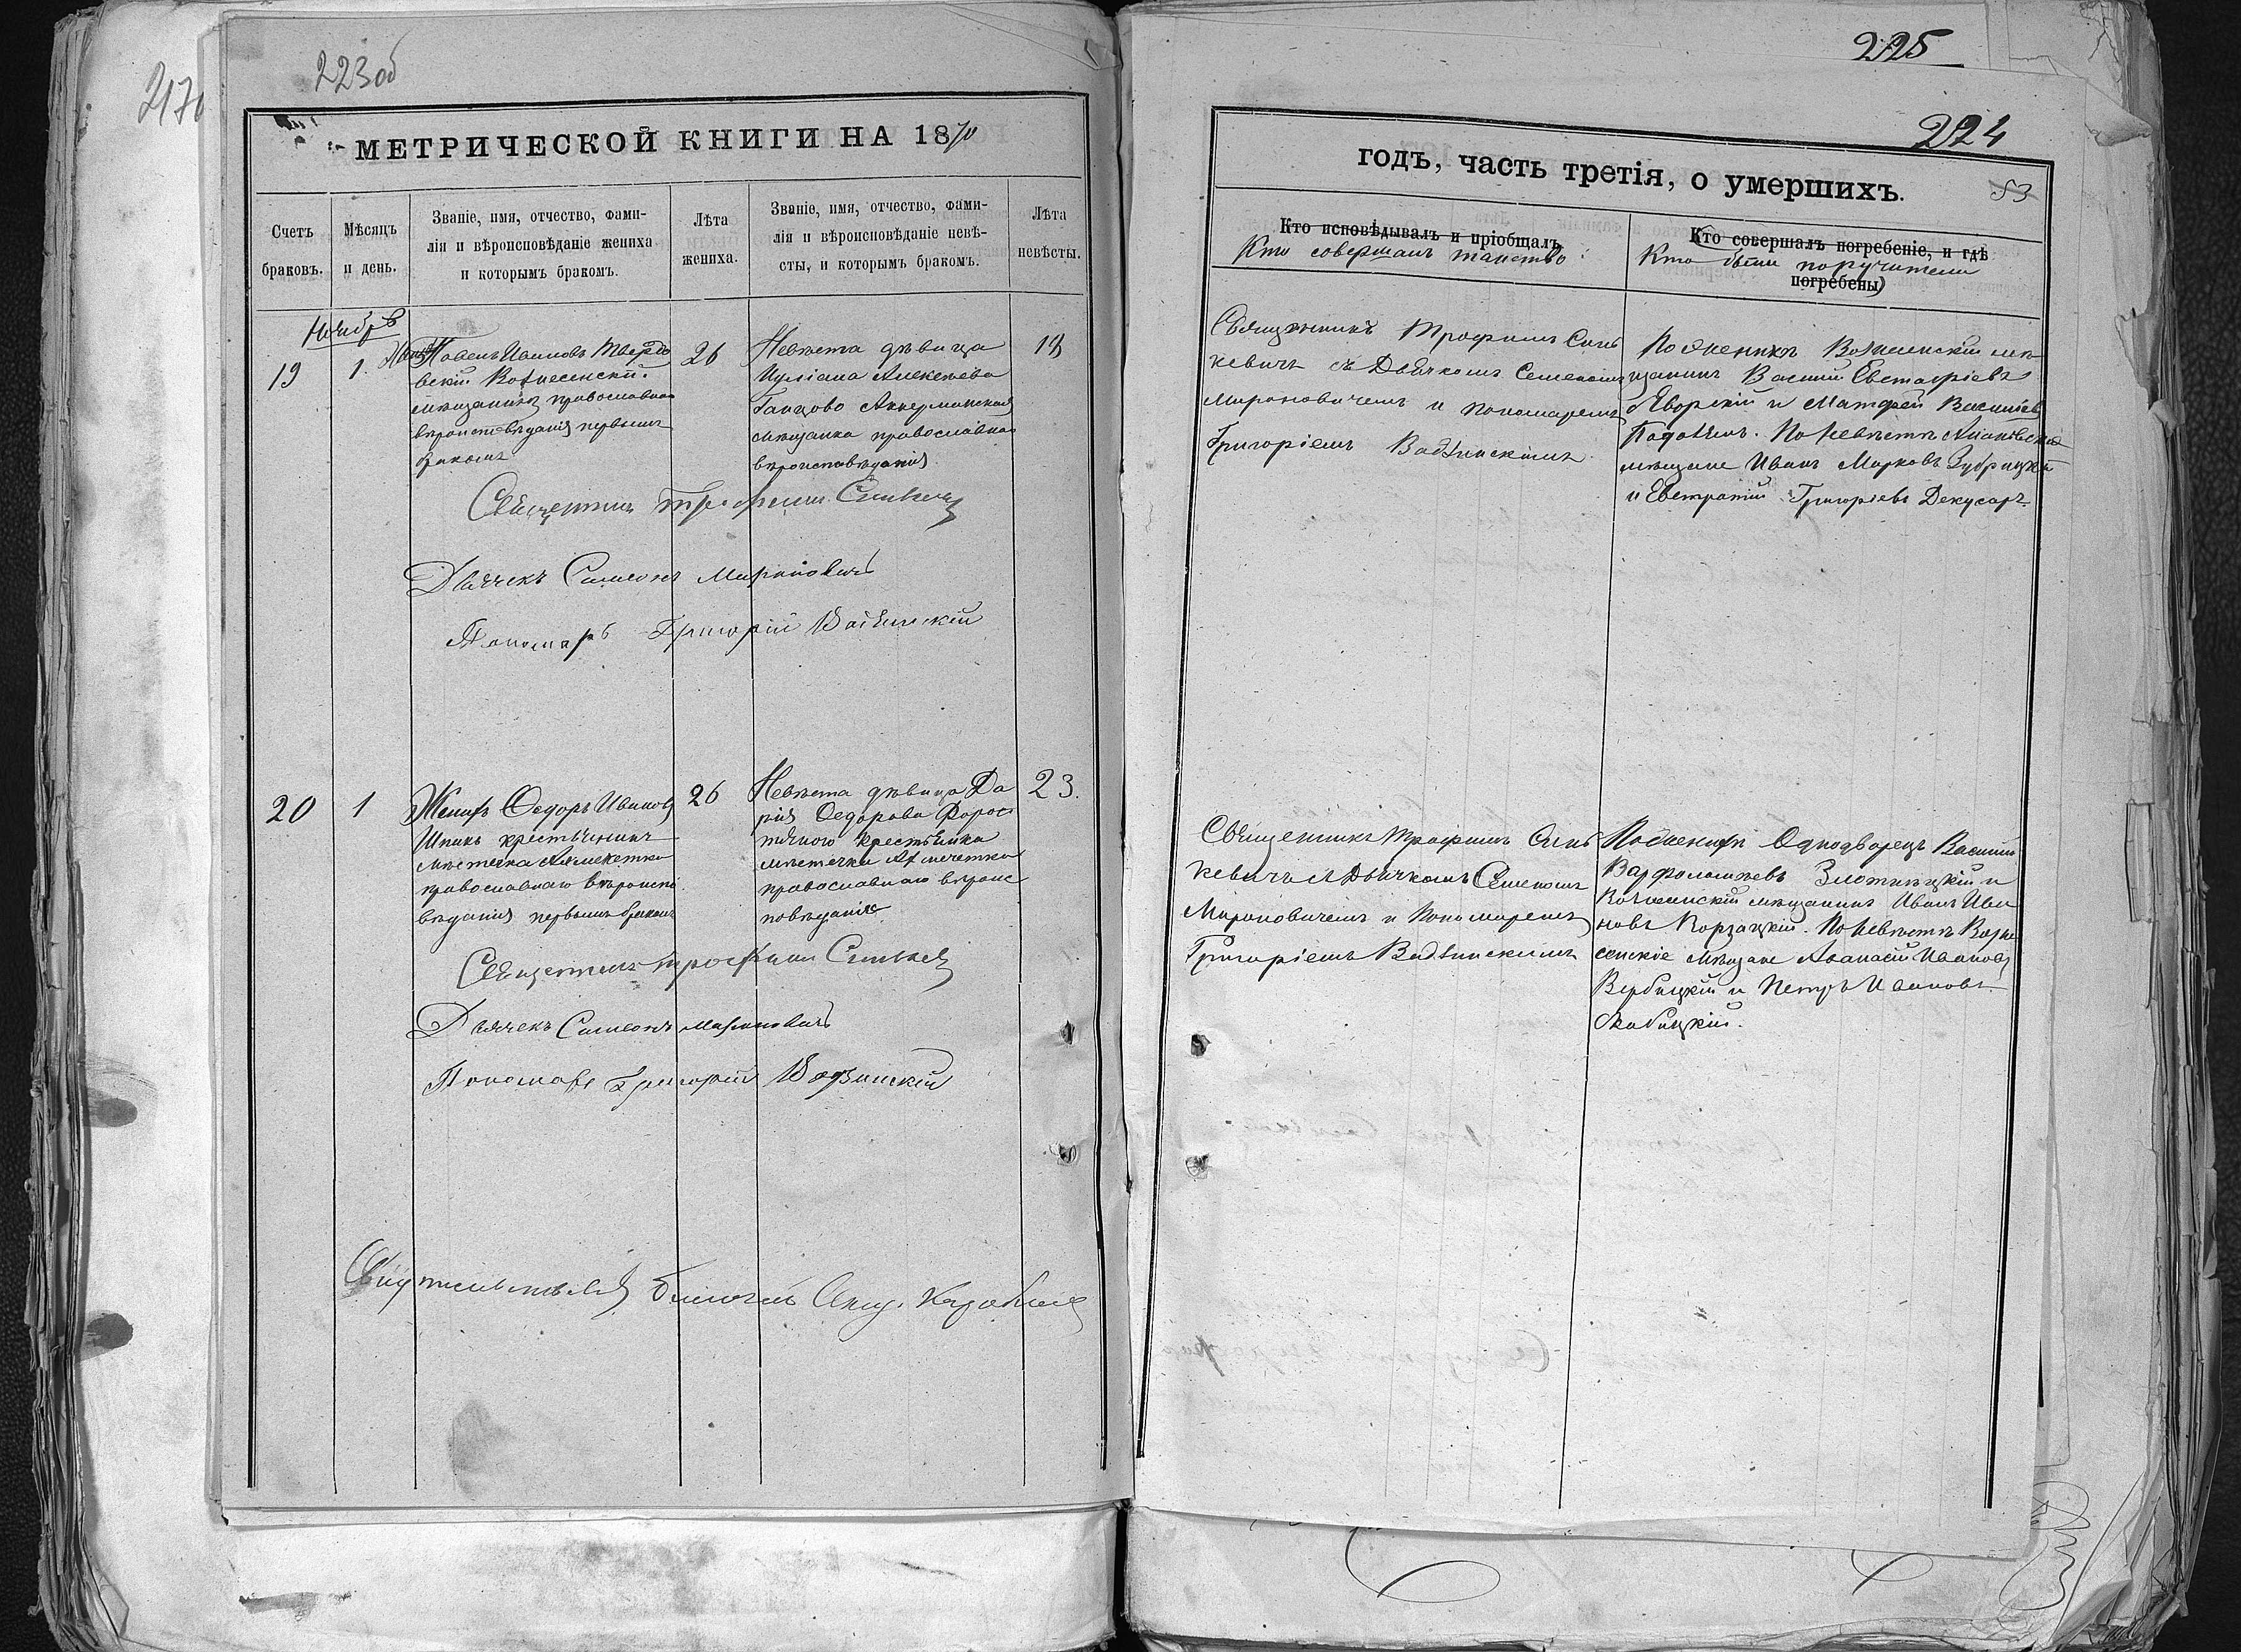 223об
217
МЕТРИЧЕСКОЙ КНИГИ НА 1870
Счетъ браковъ.
Мѣсяцъ и день.
Званіе, имя, отчество, фами-
лія и вѣроисповѣданіе жениха
и которымъ бракомъ.
Лѣта
жениха.
Званіе, имя, отчество, фами-
лія и вѣроисповѣданіе невѣ-
сты, и которымъ бракомъ.
Лѣта
невѣсты.
Ноябрь
19
1.
Павелъ Ивановъ Твердо
вскій Вознесенскій
мѣщанинъ православнаго
вѣроисповѣданія первымъ
бракомъ
26
Невѣста дѣвица
Іуліана Алексѣева
Аккерманская
мѣщанка православнаго
вѣроисповѣданія
Священникъ Трофимъ Синькевичъ
Дьячекъ Симеонъ Мироновичъ
Пономарь Григорій Вадзинскій
20
1
Женихъ Ѳедоръ Ивановъ
Шпакъ крестьянинъ
мѣстечка
православнаго вѣроиспо
вѣданія первымъ бракомъ
26
Невѣста дѣвица Да
рія Ѳедорова
крестьянка
мѣстечка
православнаго вѣроис
повѣданія
23.
Священникъ Трофимъ Синькевичъ
Дьячекъ Симеонъ Мироновичъ
Пономарь Григорій Вадзинскій
Свидѣтельствовалъ
225
224
годъ, часть третія, о умершихъ.
83
Кто исповѣдывалъ и пріобщалъ
Кто совершалъ таинство
Кто совершалъ погребеніе, и гдѣ
Кто были поручители
погребены
Священникъ Трофимъ Синь
кевичъ съ Дьячкомъ Семеномъ
Мироновичемъ и пономаремъ
Григоріемъ Вадзинскимъ
По женихѣ Вознесенскій мѣ
щанинъ Василій Евстафіевъ
Яворскій и Матфей Васильевъ
По невѣстѣ
мѣщане Иванъ Марковъ Зубрицкій
и Евстратій Григорьевъ Декусаръ.
Священникъ Трофимъ Синь
кевичъ съ Дьячкомъ Семеномъ
Мироновичемъ и Пономаремъ
Григоріемъ Вадзинскимъ
По женихѣ Однодворецъ Василій
Варфоломѣевъ Злотницкій и
Вознесенскій мѣщанинъ Иванъ Ива
новъ Корзацкій. По невѣстѣ Возне
сенскіе мѣщане Аѳанасій Ивановъ
Вербицкій и Петръ Ивановъ
Скабицкій.